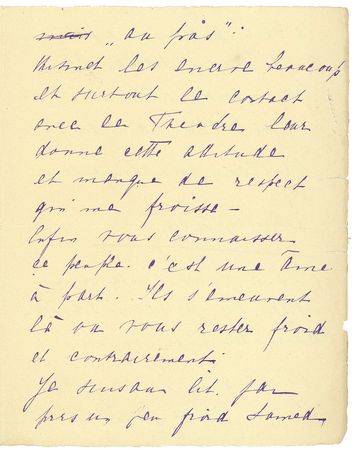 „au près":
les encore beaucoup
et surtout le contact
avec le Theadre leur
donne cette attitude
et manque de respect
qui me froisse –
Enfin vous connaisser
ce peuple. c'est une âme
à part. Ils s'émeuvent
là ou vous rester froid
et contrairement.
Je suis au lit. j'ai
pris un peu froid Samed